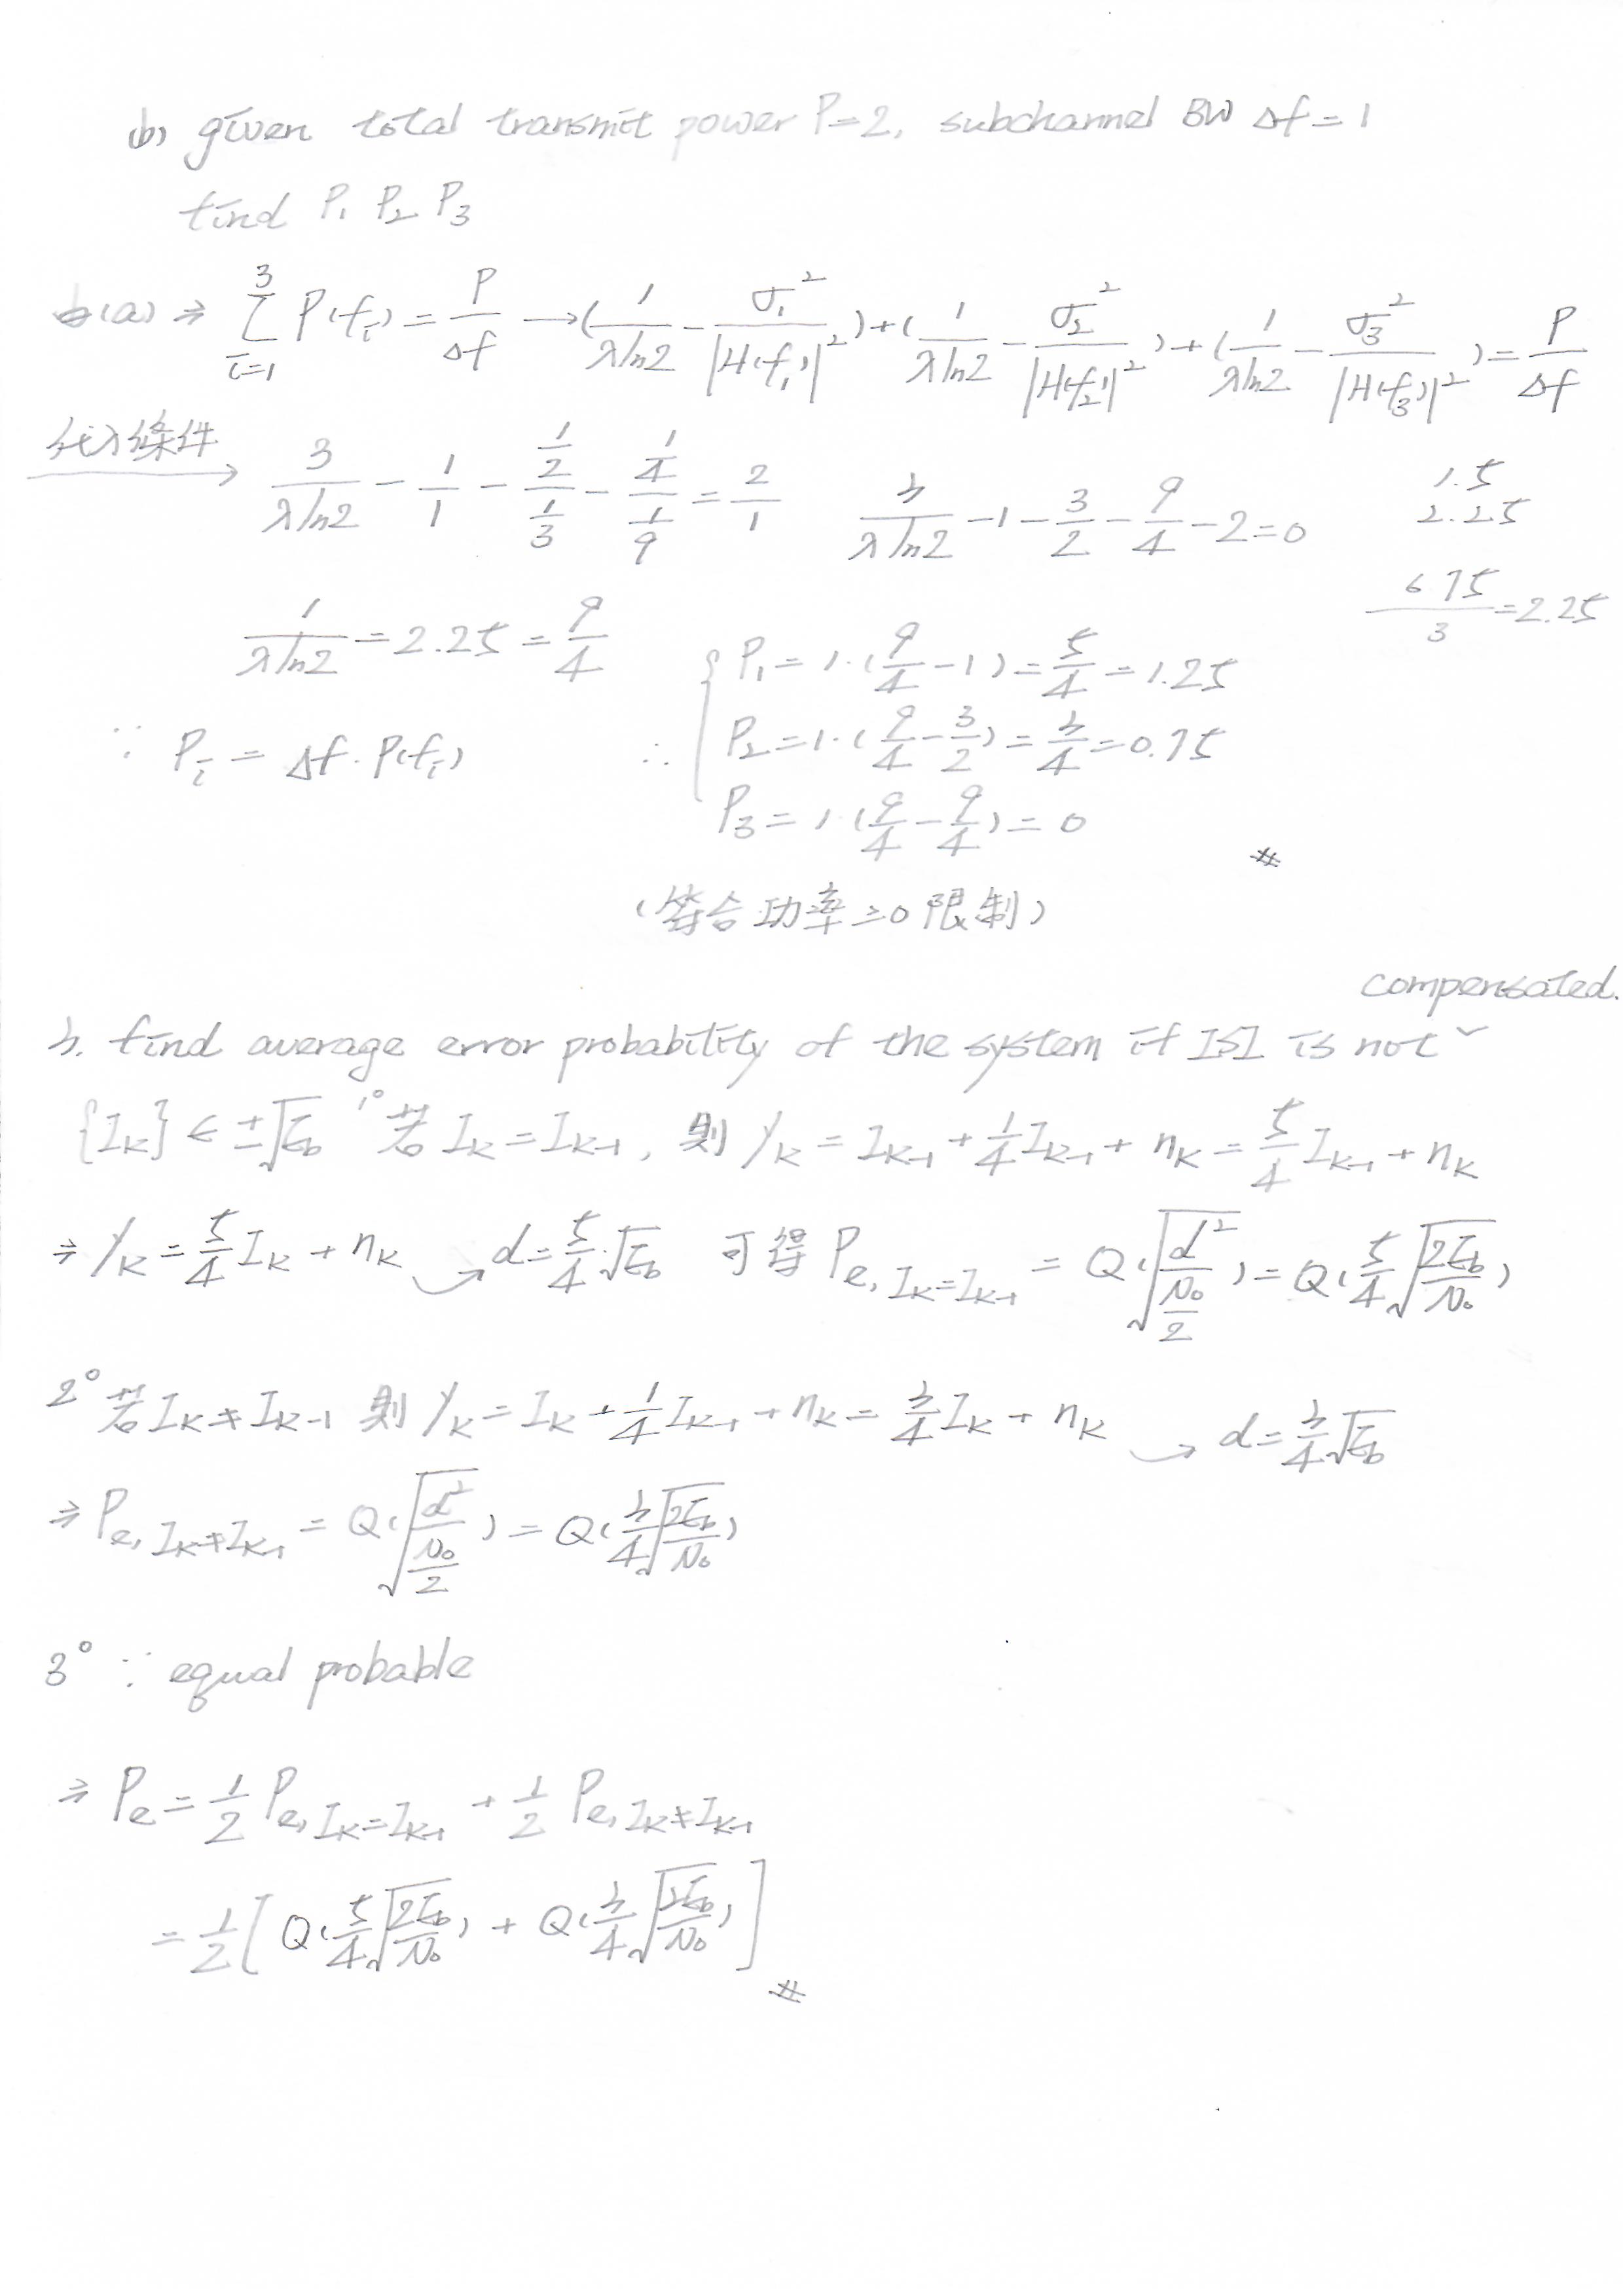 (b) given total transmit power P=2, subchannel BW Δf=1
find P₁ P₂ P₃
(a) ⇒ \sum_{i=1}^{3} P(f_i) = \frac{P}{Δf} → (\frac{1}{λln2} - \frac{σ_1^2}{|H(f_1)|^2}) + (\frac{1}{λln2} - \frac{σ_2^2}{|H(f_2)|^2}) + (\frac{1}{λln2} - \frac{σ_3^2}{|H(f_3)|^2}) = \frac{P}{Δf}
代入條件 → \frac{3}{λln2} - \frac{1}{1} - \frac{\frac{1}{2}}{\frac{1}{3}} - \frac{\frac{1}{4}}{\frac{1}{9}} = \frac{2}{1}   \frac{3}{λln2} - 1 - \frac{3}{2} - \frac{9}{4} - 2 = 0
1.5
2.25
\frac{6.75}{3} = 2.25
\frac{1}{λln2} = 2.25 = \frac{9}{4}
∵ P_i = Δf · P(f_i)
∴ { P₁ = 1·(\frac{9}{4} - 1) = \frac{5}{4} = 1.25
P₂ = 1·(\frac{9}{4} - \frac{3}{2}) = \frac{3}{4} = 0.75
P₃ = 1·(\frac{9}{4} - \frac{9}{4}) = 0 #
(符合功率≥0限制)
3. find average error probability of the system if ISI is not compensated.
{I_k} ∈ ±\sqrt{E_b} 1° 若 I_k = I_{k-1}, 則 y_k = I_{k-1} + \frac{1}{4}I_{k-1} + n_k = \frac{5}{4}I_{k-1} + n_k
⇒ y_k = \frac{5}{4}I_k + n_k → d = \frac{5}{4}·\sqrt{E_b} 可得 P_{e, I_k=I_{k-1}} = Q(\sqrt{\frac{d^2}{\frac{N_0}{2}}}) = Q(\frac{5}{4}\sqrt{\frac{2E_b}{N_0}})
2° 若 I_k ≠ I_{k-1} 則 y_k = I_k + \frac{1}{4}I_{k-1} + n_k = \frac{3}{4}I_k + n_k → d = \frac{3}{4}\sqrt{E_b}
⇒ P_{e, I_k≠I_{k-1}} = Q(\sqrt{\frac{d^2}{\frac{N_0}{2}}}) = Q(\frac{3}{4}\sqrt{\frac{2E_b}{N_0}})
3° ∵ equal probable
⇒ P_e = \frac{1}{2}P_{e, I_k=I_{k-1}} + \frac{1}{2}P_{e, I_k≠I_{k-1}}
= \frac{1}{2}[Q(\frac{5}{4}\sqrt{\frac{2E_b}{N_0}}) + Q(\frac{3}{4}\sqrt{\frac{2E_b}{N_0}})] #